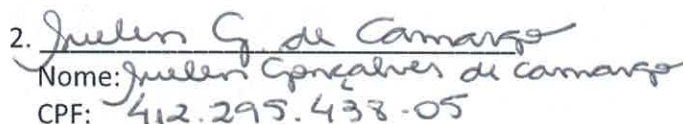 2. Suelen G. de Camargo
Nome: Suelen Gonçalves de camargo
CPF: 412.295.438-05